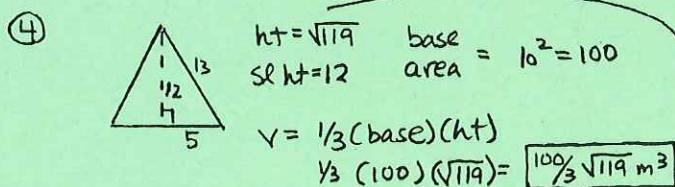 ④
13
12
5
ht = √119
sl ht = 12
base area = 10² = 100
V = 1/3 (base) (ht)
1/3 (100) (√119) = 100/3 √119 m³